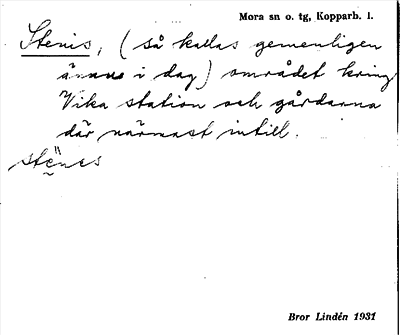 Mora sn o. tg, Kopparb. l.
Stenis, (så kallas gemenligen
ännu i dag) området kring
Vika station och gårdarna
där närmast intill.
stënes
Bror Lindén 1931